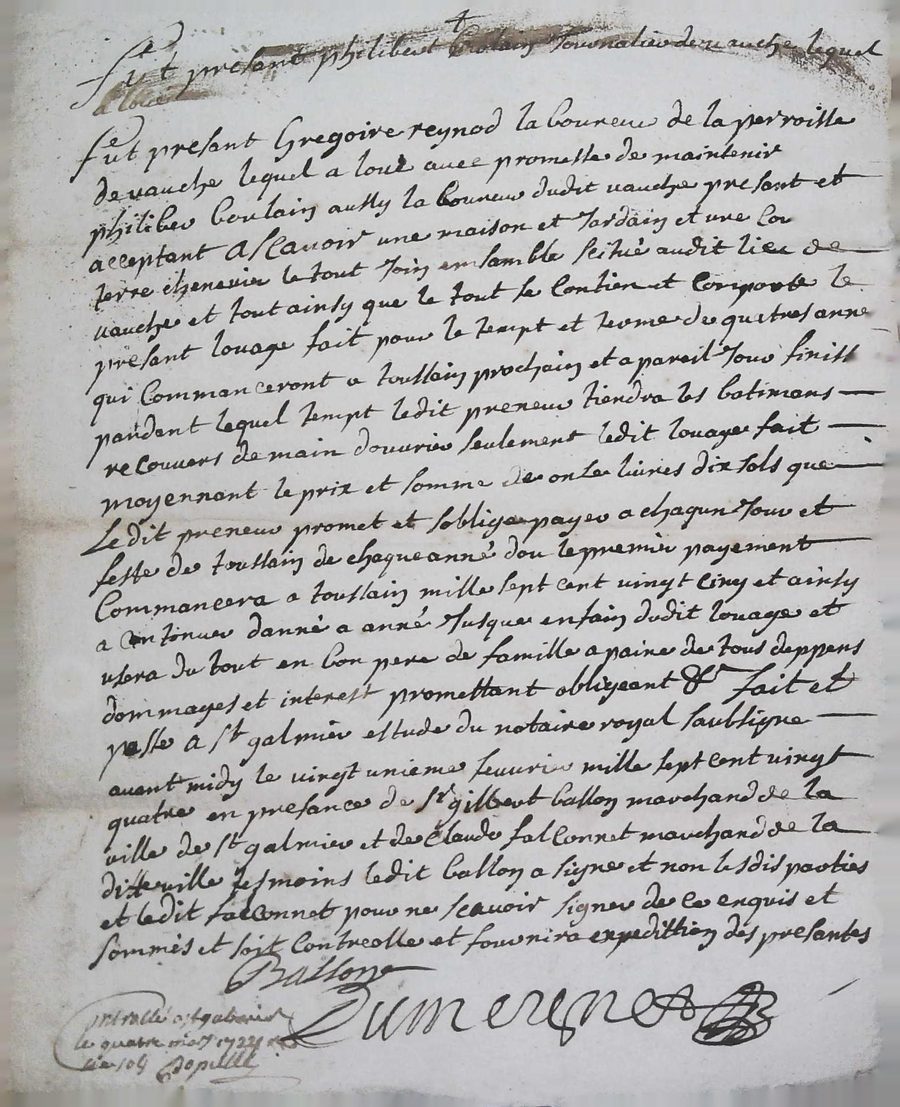 fut presant philibert Goulain Journalier de vauche lequel
a loué
fut presant Gregoire reynod laboureur de la perroisse
de vauche lequel a loué avec promesse de maintenir
philiber Goulain aussy laboureur dudit vauche presant et
acceptant Ascavoir une maison et Jardain et une
terre chenevier le tout Join ensamble scitué audit lieu de
vauche et tout ainsy que le tout se contien et comporte le
presant louage fait pour le tempt et terme de quatres anné
qui Commanceront a toussain prochain et a pareil Jour finiss
pandant lequel tempt ledit preneur tiendra les batimans
recouvers de main douvrier seulement ledit louage fait
moyennant le prix et somme de onze livres dix sols que
Ledit preneur promet et soblige payer a chaqun Jour et
feste de toussain de chaque anné dou le premier payement
Commancera a toussain mille sept cent vingt cinq et ainsy
a continuer danné a anné Jusque enfain dudit louage et
usera du tout en bon pere de famille a paine de tous deppens
dommages et interest promettant obligeant &r fait et
passe A st galmier estude du notaire royal saubsigne
avant midy le vingt unieme feuvrier mille sept cent vingt
quatre en presance de sr gilbert ballon marchand de la
ville de st galmier et de Claude falconnet marchand de la
ditte ville tesmoins ledit ballon a signe et non lesdis parties
et ledit falconnet pour ne scavoir signer de ce enquis et
sommés et soit Controlle et fournira expedittion des presantes
Ballon
Dumeignet
Controllé a st galmier
le quatre mars 1724 r
six sols